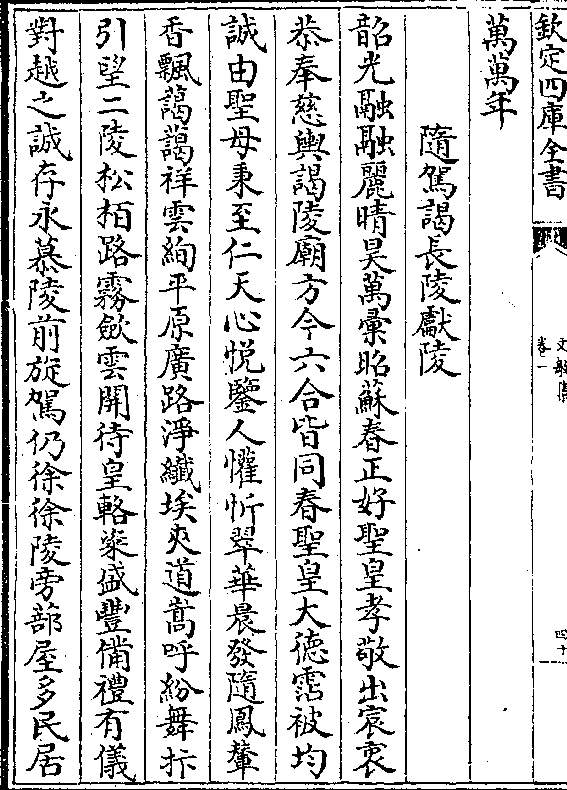 欽定四庫全書
卷一
四十
萬萬年
隨駕謁長陵獻陵
韶光融融麗晴昊萬彙昭蘇春正好聖皇孝敬出宸衷
恭奉慈輿謁陵廟方今六合皆同春聖皇大德霑被均
誠由聖母秉至仁天心悅鑒人懽忻翠華晨發隨鳳輦
香飄藹藹祥雲絢平原廣路淨纖埃夾道嵩呼紛舞抃
引望二陵松栢路霧斂雲開待皇輅粢盛豐備禮有儀
對越之誠存永慕陵前旋駕仍徐徐陵旁蔀屋多民居